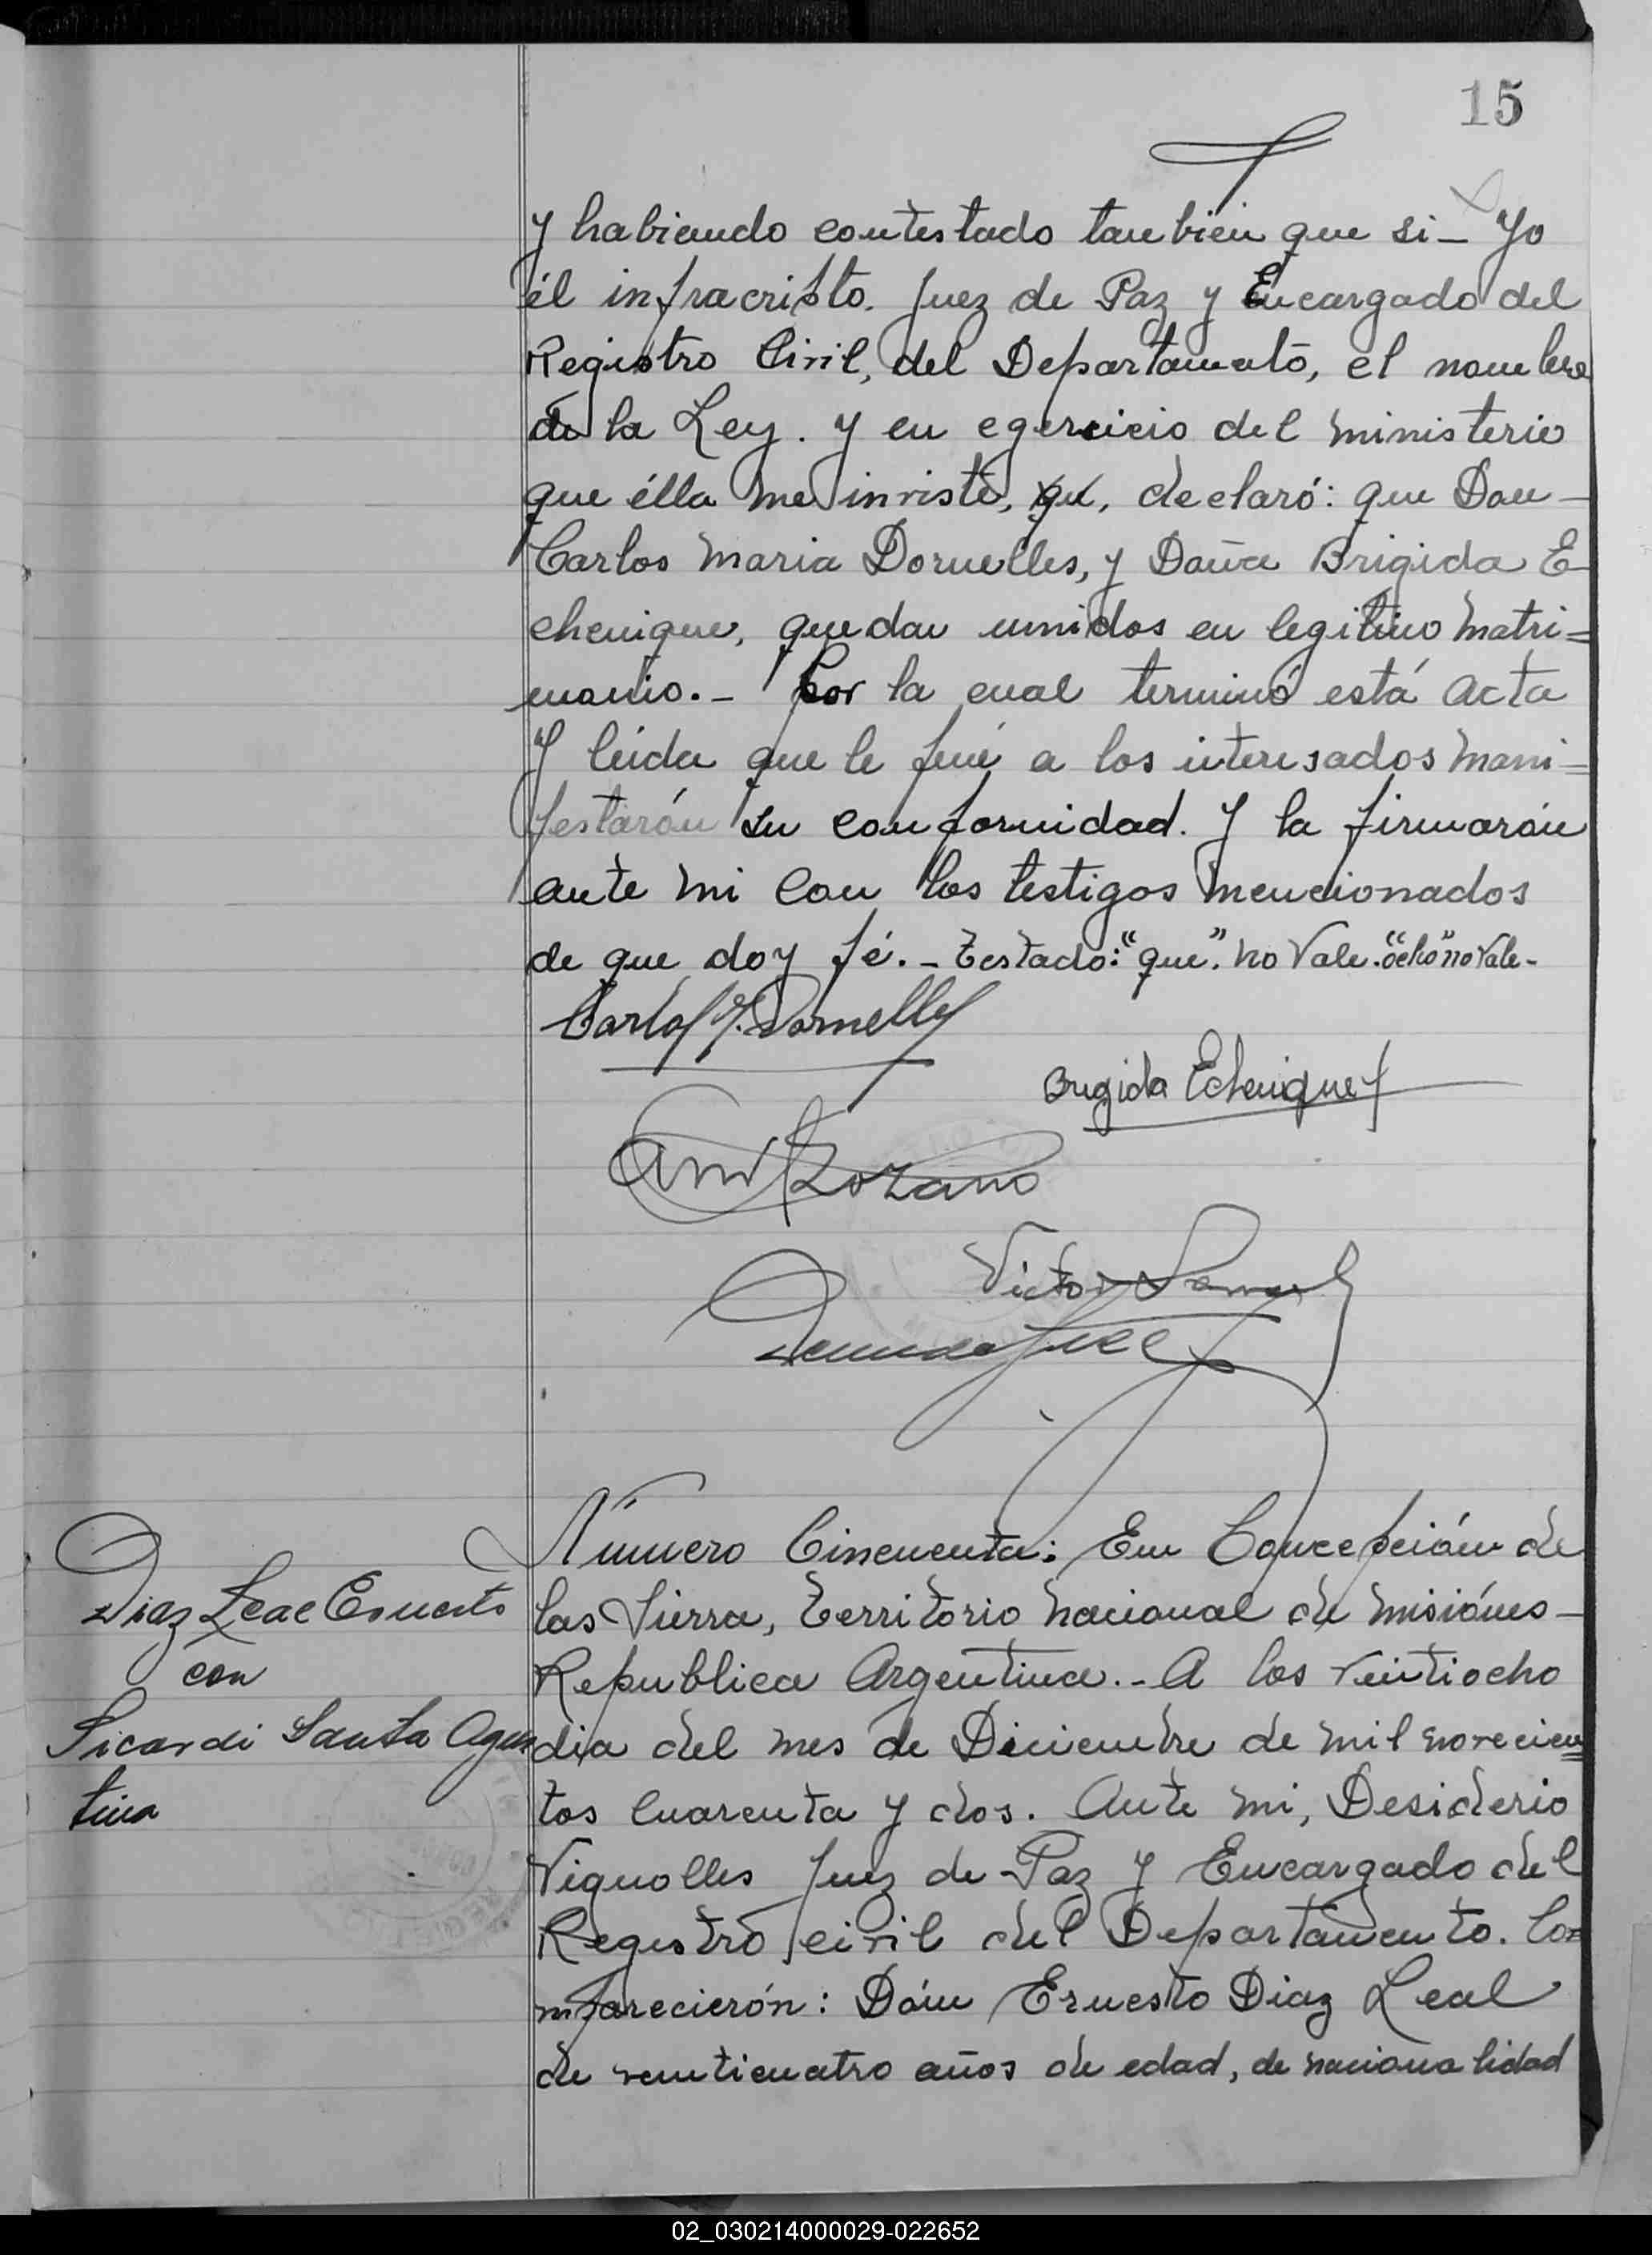 15
y habiendo contestado tambien que si - Yo
él infracristo. Juez de Paz y Encargado del
Registro Civil, del Departamento, el nombre
de la Ley. y en egercicio del ministerio
que élla me inviste, que, declaró: que Don -
Carlos Maria Dornelles, y Doña Brigida E-
chenique, quedan unidos en legitimo matri=
monio. - Por la cual terminó está acta
Y leida que le fué a los interesados mani=
festarón su conformidad. Y la firmarón
ante mi con los testigos mencionados
de que doy fé. - Testado: "que". no Vale. "ocho" no Vale -
Carlos M. Dornelles
Brigida Echenique
Lozano
Victor
Número Cincuenta: En Concepción de
las Sierra, territorio nacional de misiónes -
Republica Argentina. - A los veintiocho
dia del mes de Diciembre de mil novecien=
tos cuarenta y dos. Ante mi, Desiderio
Vignolles Juez de Paz y Encargado del
Registro civil del Departamento. Co=
mparecierón: Dón Ernesto Diaz Leal
de veinticuatro años de edad, de nacionalidad
Diaz Leal Ernesto
con
Sicardi Santa Agus
tina
02_030214000029-022652